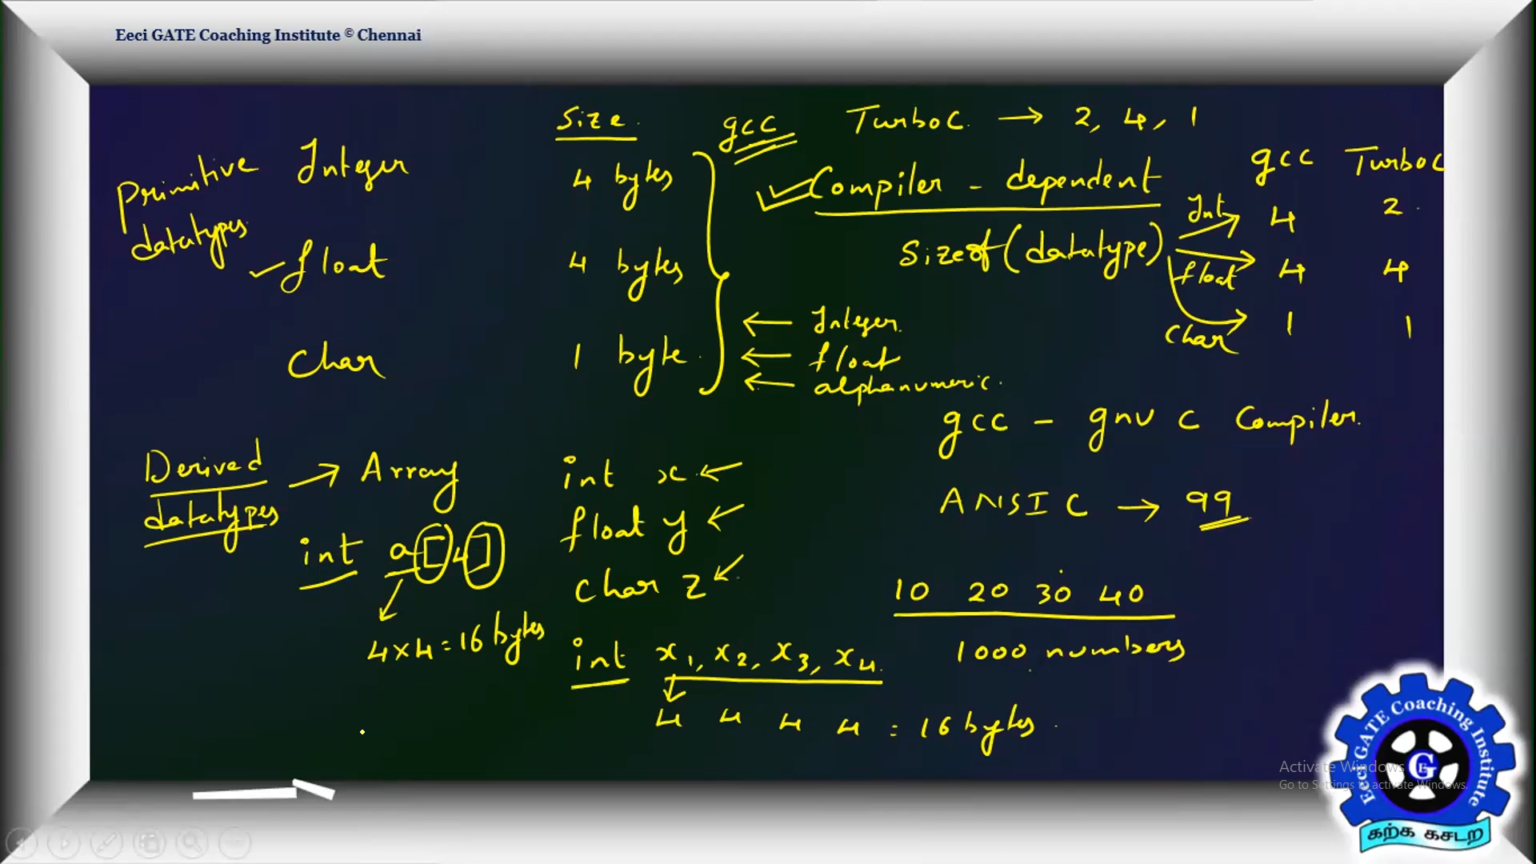 Eeci GATE Coaching Institute © Chennai
Size gcc TurboC → 2, 4, 1
Primitive datatypes
Integer 4 bytes
float 4 bytes
Char 1 byte
Compiler - dependent
Sizeof (datatype)
gcc TurboC
Int 4 2
float 4 4
Char 1 1
← Integer
← float
← alphanumeric.
gcc - gnu C Compiler.
ANSI C → 99
Derived datatypes → Array
int a[4]
4x4=16 bytes
int x ←
float y ←
Char z ←
int x1, x2, x3, x4
4 4 4 4 = 16 bytes
10 20 30 40
1000 numbers
Activate Windows
Go to Settings to activate Windows.
Eeci GATE Coaching Institute
G
E
கற்க கசடற